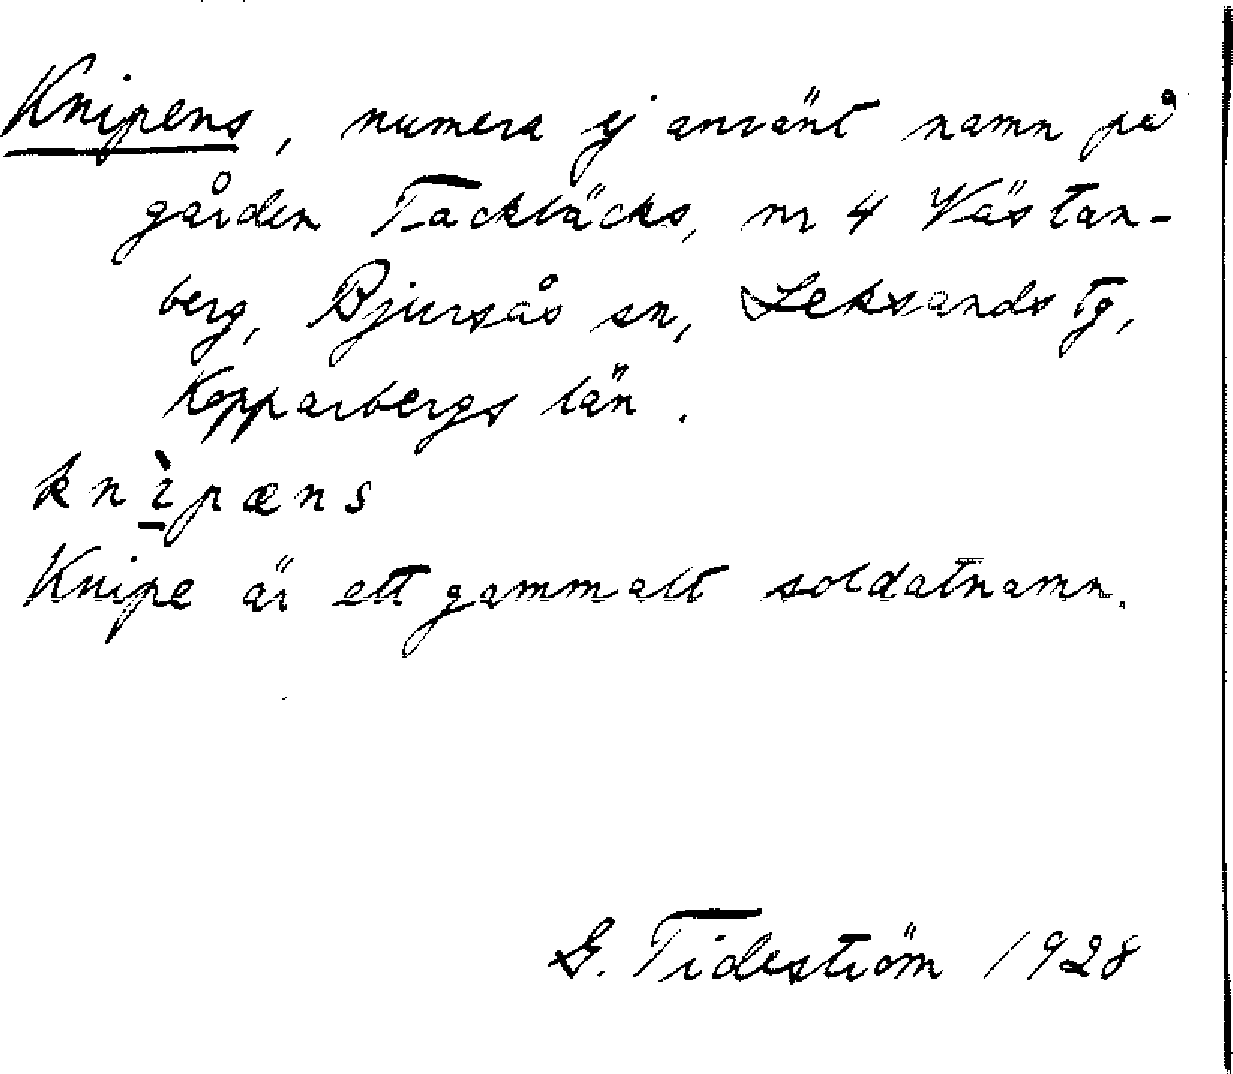 Knipens, numera ej använt namn på
gården Tackbäcks, nr 4 Västan-
berg, Bjursås sn, Leksands tg,
Kopparbergs län.
knì̱pæns
Knipe är ett gammalt soldatnamn.
G. Tideström 1928